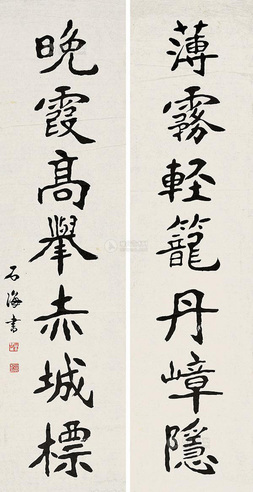 薄霧輕籠丹嶂隱
晚霞高舉赤城標
石海書